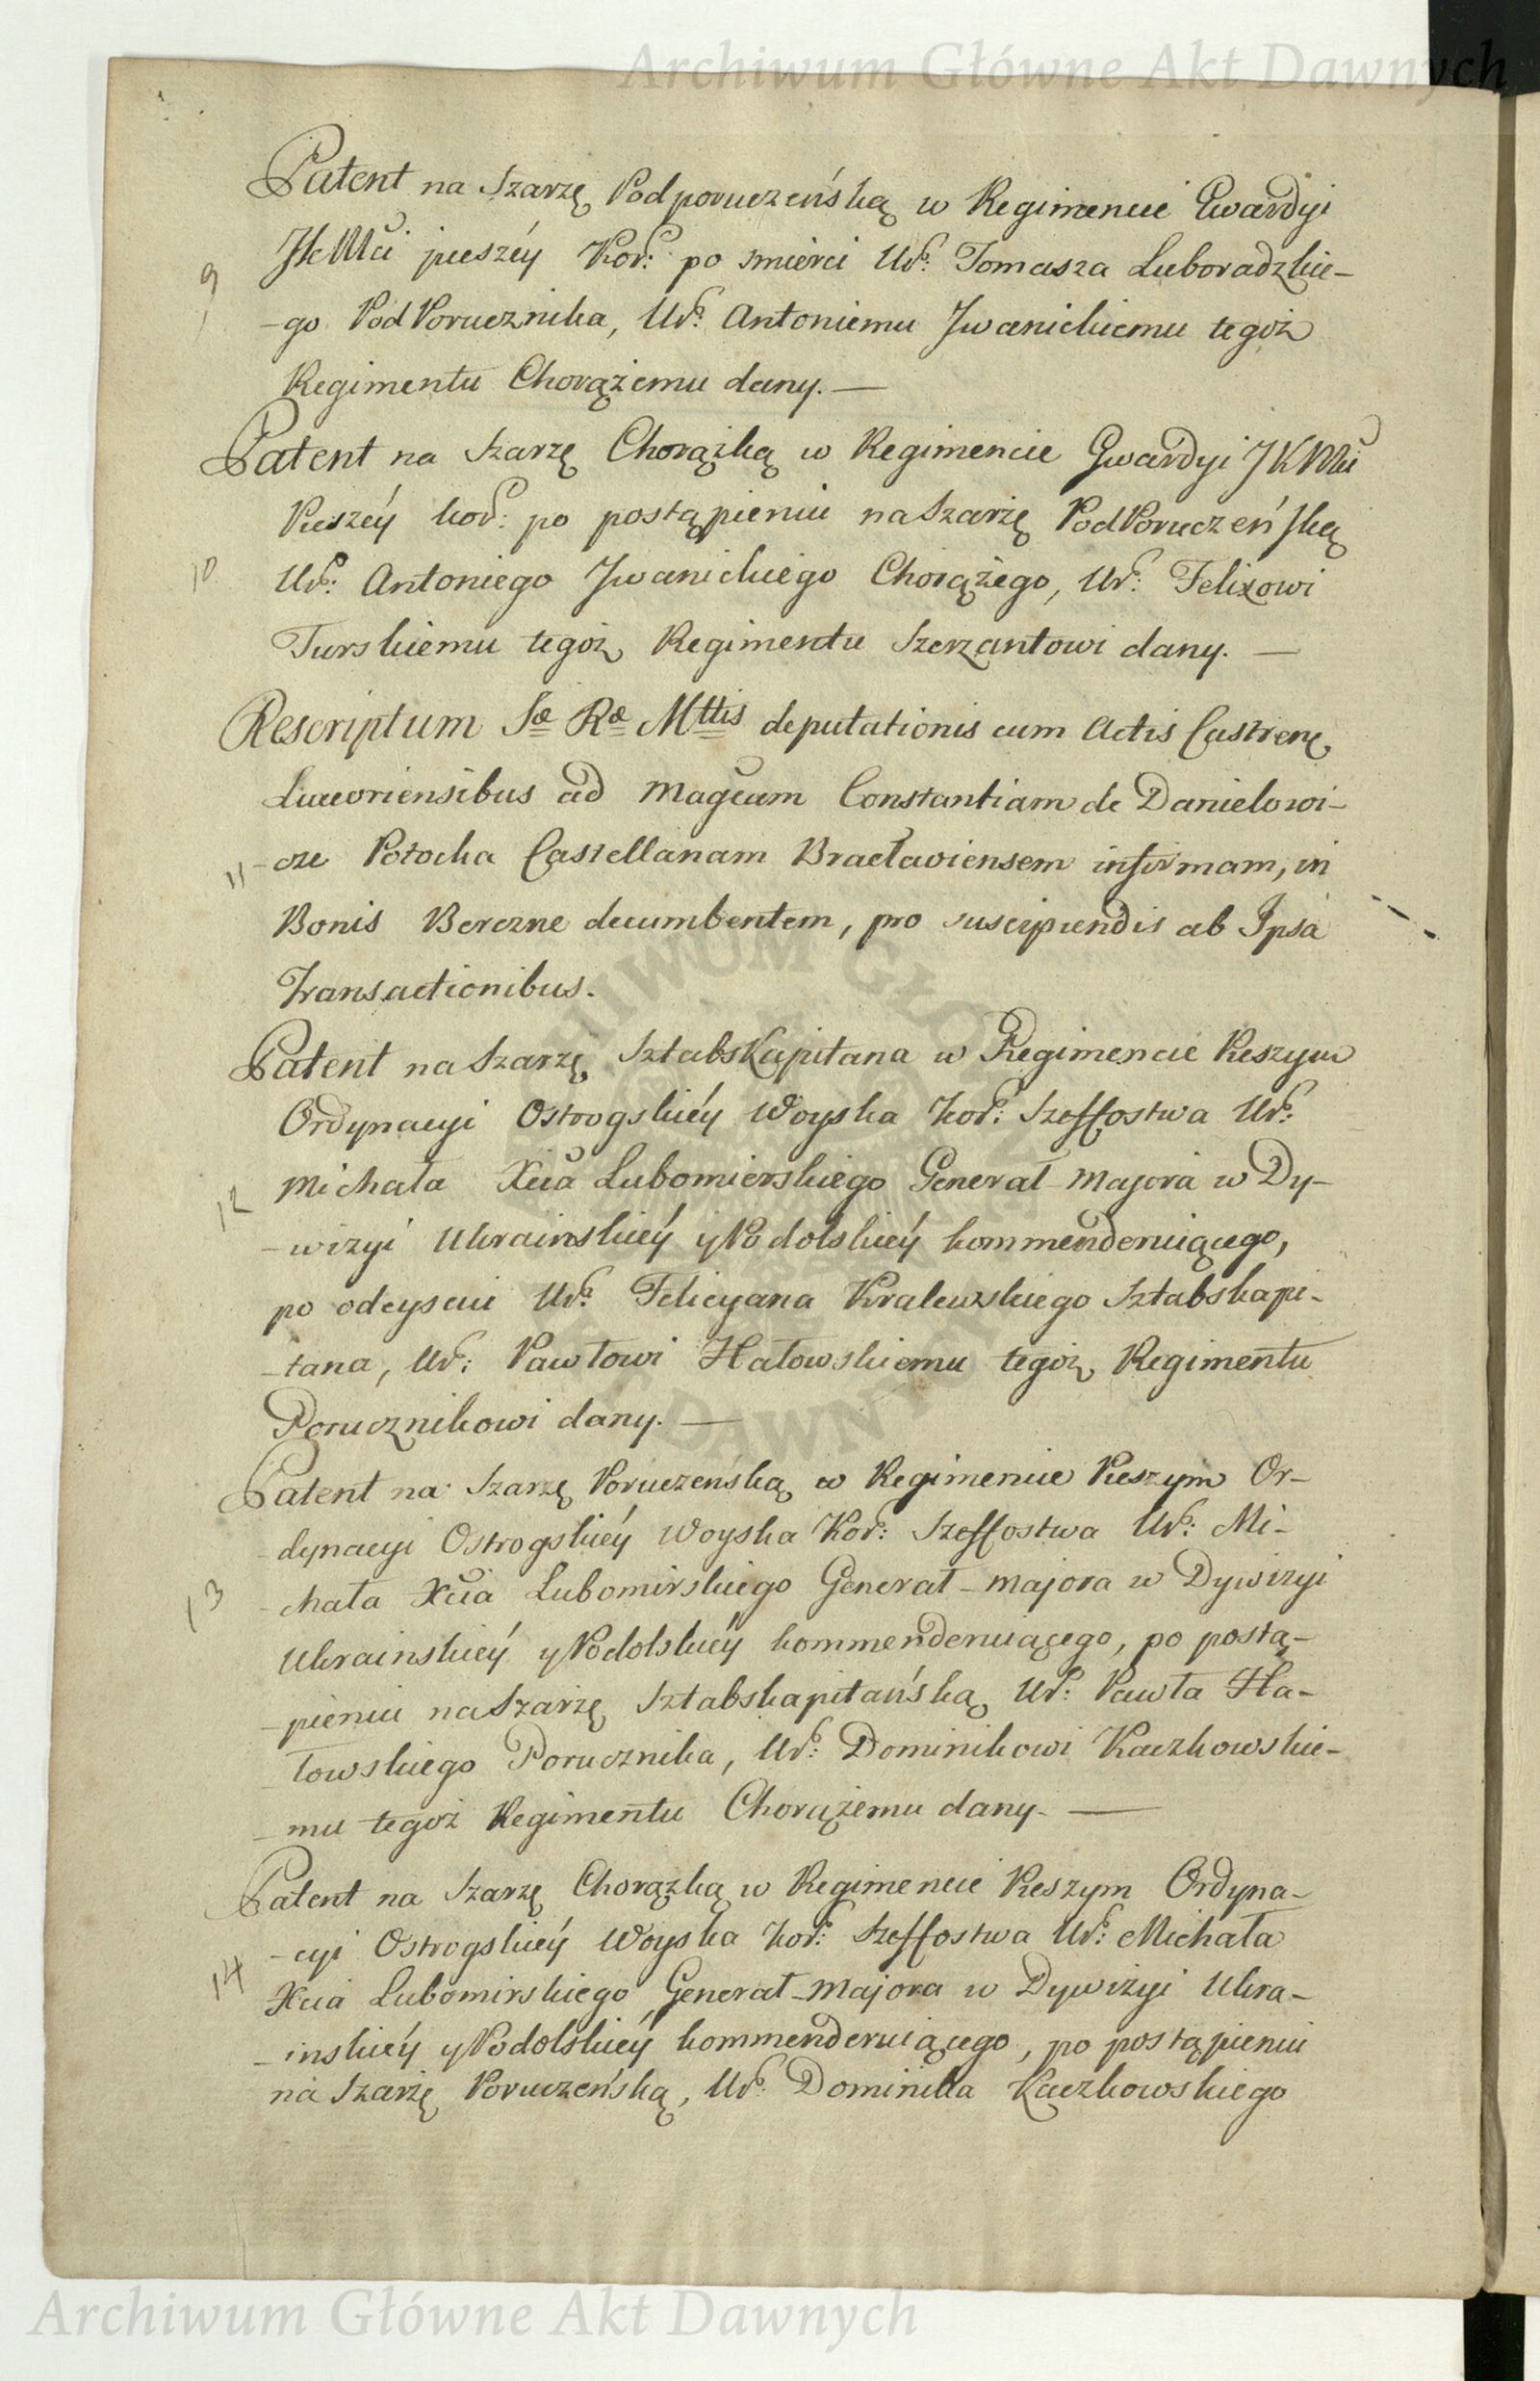 Archiwum Główne Akt Dawnych
Patent na Szarżę Podporuczeńską w Regimencie Gwardyi
JKMci pieszéy Kor: po smierci Ur: Tomasza Luboradzkie-
9
-go PodPorucznika, Ur: Antoniemu Jwanickiemu tegoż
Regimentu Chorążemu dany.—
Patent na Szarżę Chorążką w Regimencie Gwardyi JKMci
Pieszéy kor: po postąpieniu na Szarżę PodPoruczeńską
10
Ur: Antoniego Jwanickiego Chorążego, Ur: Felixowi
Turskiemu tegoż Regimentu Szerżantowi dany. —
Rescriptum Sæ Ræ Mttis deputationis cum Actis Castren.
Luceoriensibus ad Magcam Constantiam de Danielowi-
11
-cze Potocka Castellanam Bracławiensem infirmam, in
Bonis Berezne decumbentem, pro suscipiendis ab Ipsa
Transactionibus.
Patent na Szarżę SztabsKapitana w Regimencie Pieszym
Ordynacyi Ostrogskiéy Woyska Kor: Szeffostwa Ur:
12
Michała Xcia Lubomierskiego Generał Majora w Dy-
-wizyi Ukrainskiéy y Podolskiéy kommenderuiącego,
po odeysciu Ur: Felicyana Kralewskiego Sztabskapi-
-tana, Ur: Pawłowi Hałowskiemu tegoż Regimentu
Porucznikowi dany.—
Patent na Szarżę Poruczeńską w Regimencie Pieszym Or-
dynacyi Ostrogskiéy Woyska Kor: Szeffostwa Ur: Mi-
13
-chała Xcia Lubomirskiego Generał-Majora w Dywizyi
Ukrainskiéy y Podolskiéy kommenderuiącego, po postą-
-pieniu na Szarżę Sztabskapitańską Ur: Pawła Ha-
łowskiego Porucznika, Ur: Dominikowi Kaczkowskie-
-mu tegoż Regimentu Chorążemu dany. —
Patent na Szarżę Chorążką w Regimencie Pieszym Ordyna-
-cyi Ostrogskiéy Woyska Kor: Szeffostwa Ur: Michała
14
Xcia Lubomirskiego Generał-Majora w Dywizyi Ukra-
-inskiéy y Podolskiéy kommenderuiącego, po postąpieniu
na Szarżę Poruczeńską, Ur: Dominika Kaczkowskiego
Archiwum Główne Akt Dawnych